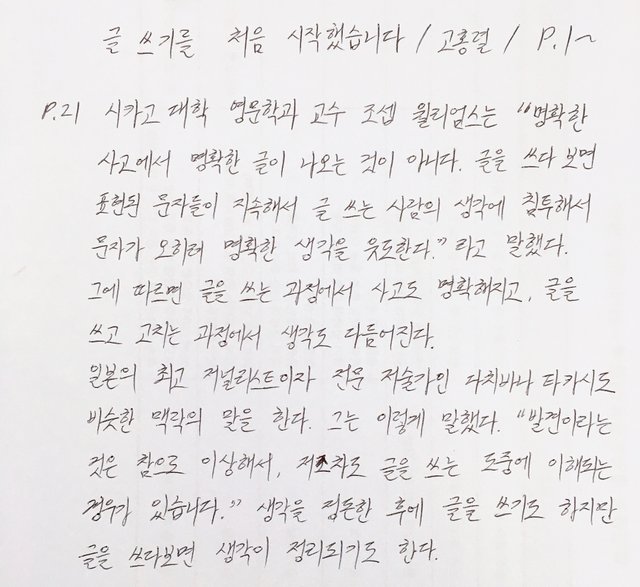 글 쓰기를 처음 시작했습니다 / 고홍렬 / P.1~
P.21 시카고 대학 영문학과 교수 조셉 윌리엄스는 "명확한
사고에서 명확한 글이 나오는 것이 아니다. 글을 쓰다 보면
표현된 문자들이 지속해서 글 쓰는 사람의 생각에 침투해서
문자가 오히려 명확한 생각을 유도한다." 라고 말했다.
그에 따르면 글을 쓰는 과정에서 사고도 명확해지고, 글을
쓰고 고치는 과정에서 생각도 다듬어진다.
일본의 최고 저널리스트이자 전문 저술가인 다치바나 타카시도
비슷한 맥락의 말을 한다. 그는 이렇게 말했다. "발견이라는
것은 참으로 이상해서, 저조차도 글을 쓰는 도중에 이해되는
경우가 있습니다." 생각을 정돈한 후에 글을 쓰기도 하지만
글을 쓰다보면 생각이 정리되기도 한다.